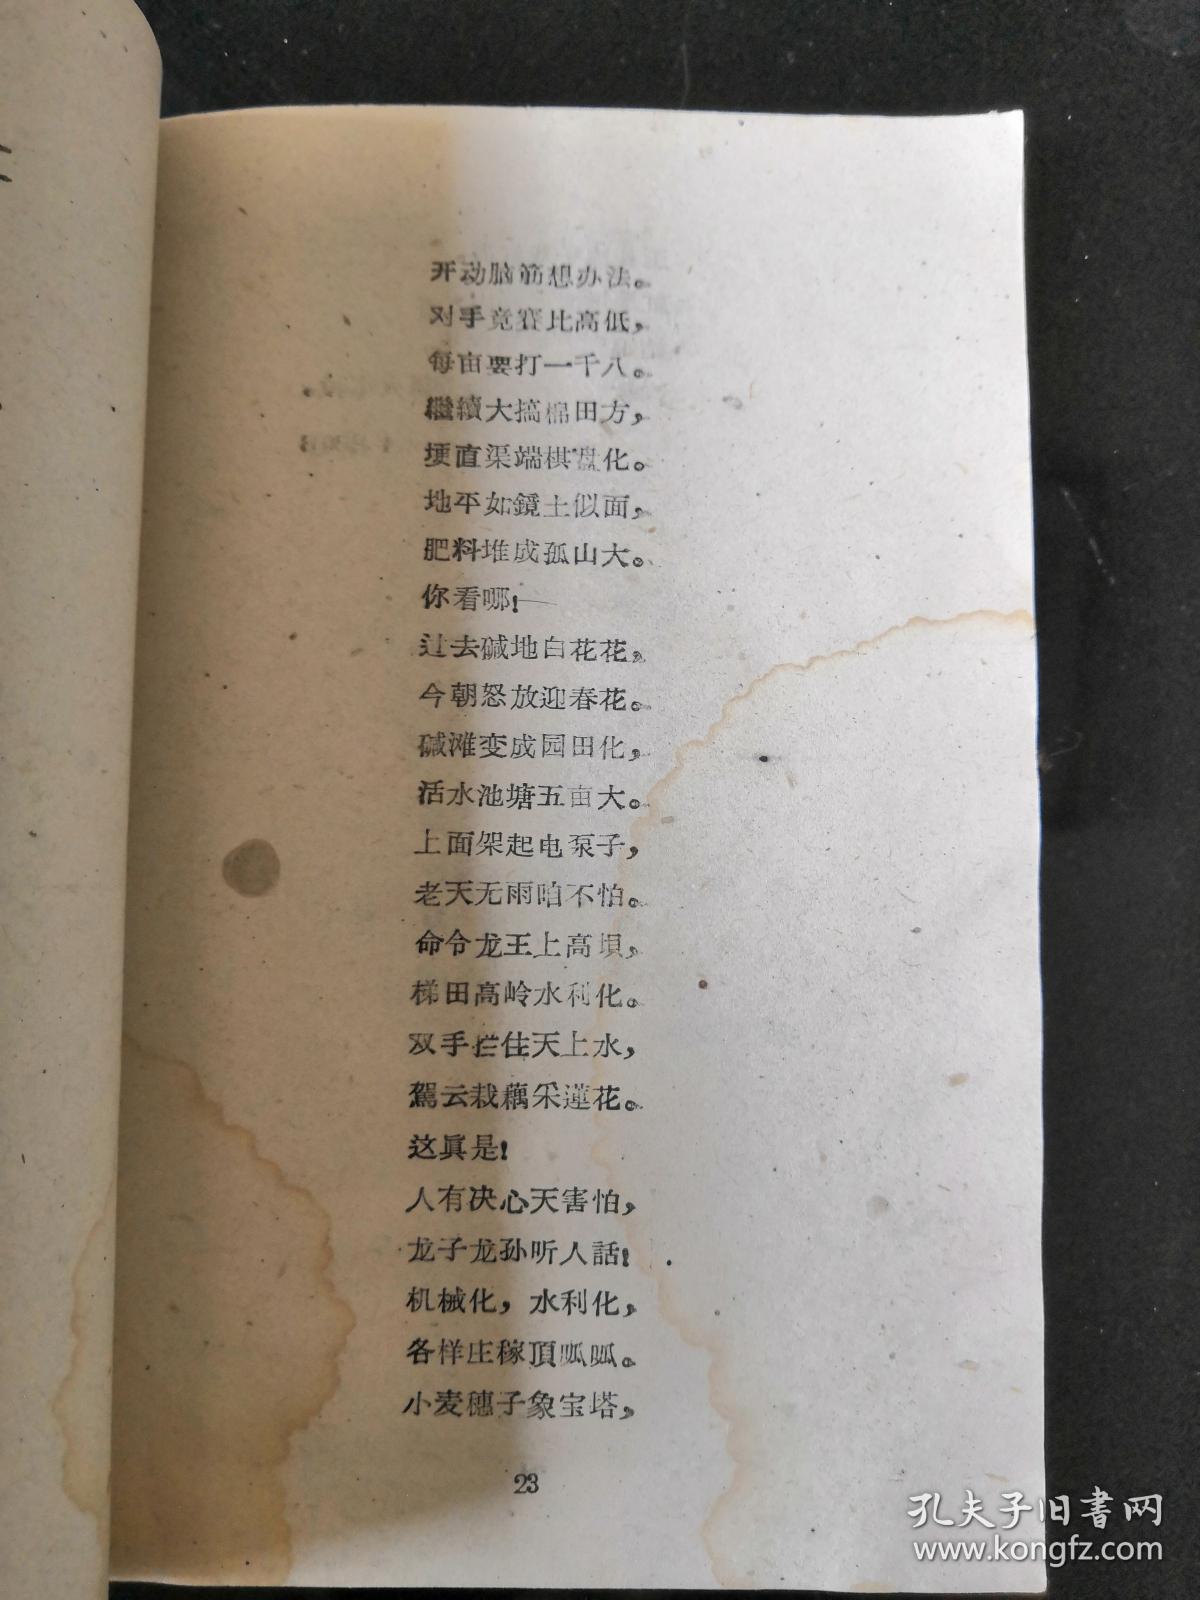 开动脑筋想办法。
对手竞赛比高低，
每亩要打一千八。
繼續大搞棉田方，
埂直渠端棋盘化。
地平如鏡土似面，
肥料堆成孤山大。
你看哪！——
过去碱地白花花，
今朝怒放迎春花。
碱滩变成园田化，
活水池塘五亩大。
上面架起电泵子，
老天无雨咱不怕。
命令龙王上高垻，
梯田高岭水利化。
双手拦住天上水，
駕云栽藕采蓮花。
这眞是！
人有决心天害怕，
龙子龙孙听人話！
机械化，水利化，
各样庄稼頂呱呱。
小麦穗子象宝塔，
23
孔夫子旧書网
www.kongfz.com